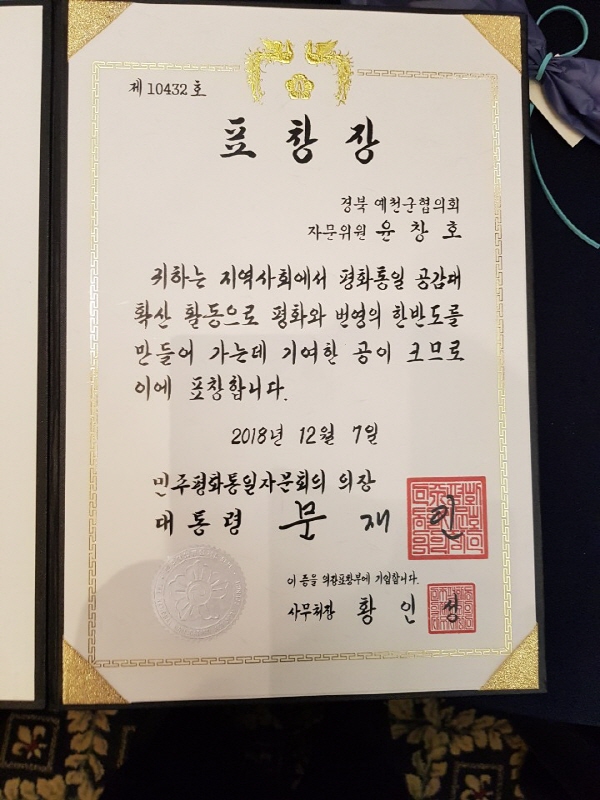 제 10432 호
표 창 장
경북 예천군협의회
자문위원 윤 창 호
귀하는 지역사회에서 평화통일 공감대
확산 활동으로 평화와 번영의 한반도를
만들어 가는데 기여한 공이 크므로
이에 표창합니다.
2018년 12월 7일
민주평화통일자문회의 의장
대 통 령 문 재 인
이 증을 의장표창부에 기입합니다.
사무처장 황 인 성